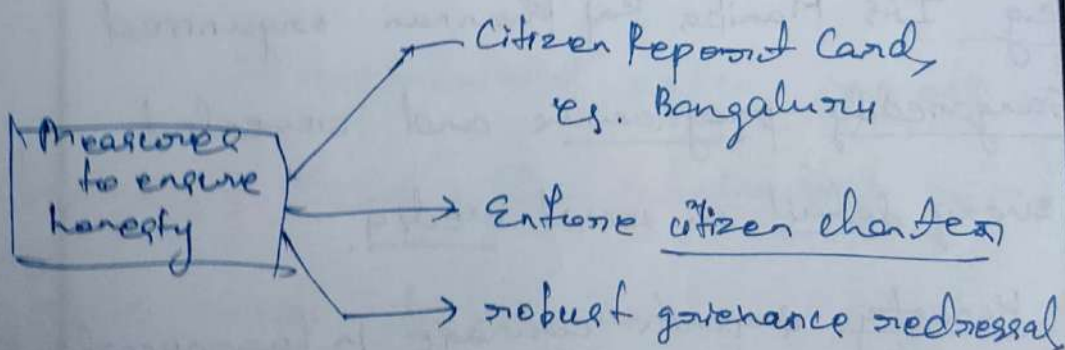 Measures
to ensure
honesty
Citizen Report Card,
eg. Bangaluru
Enforce citizen charter
robust grievance redressal